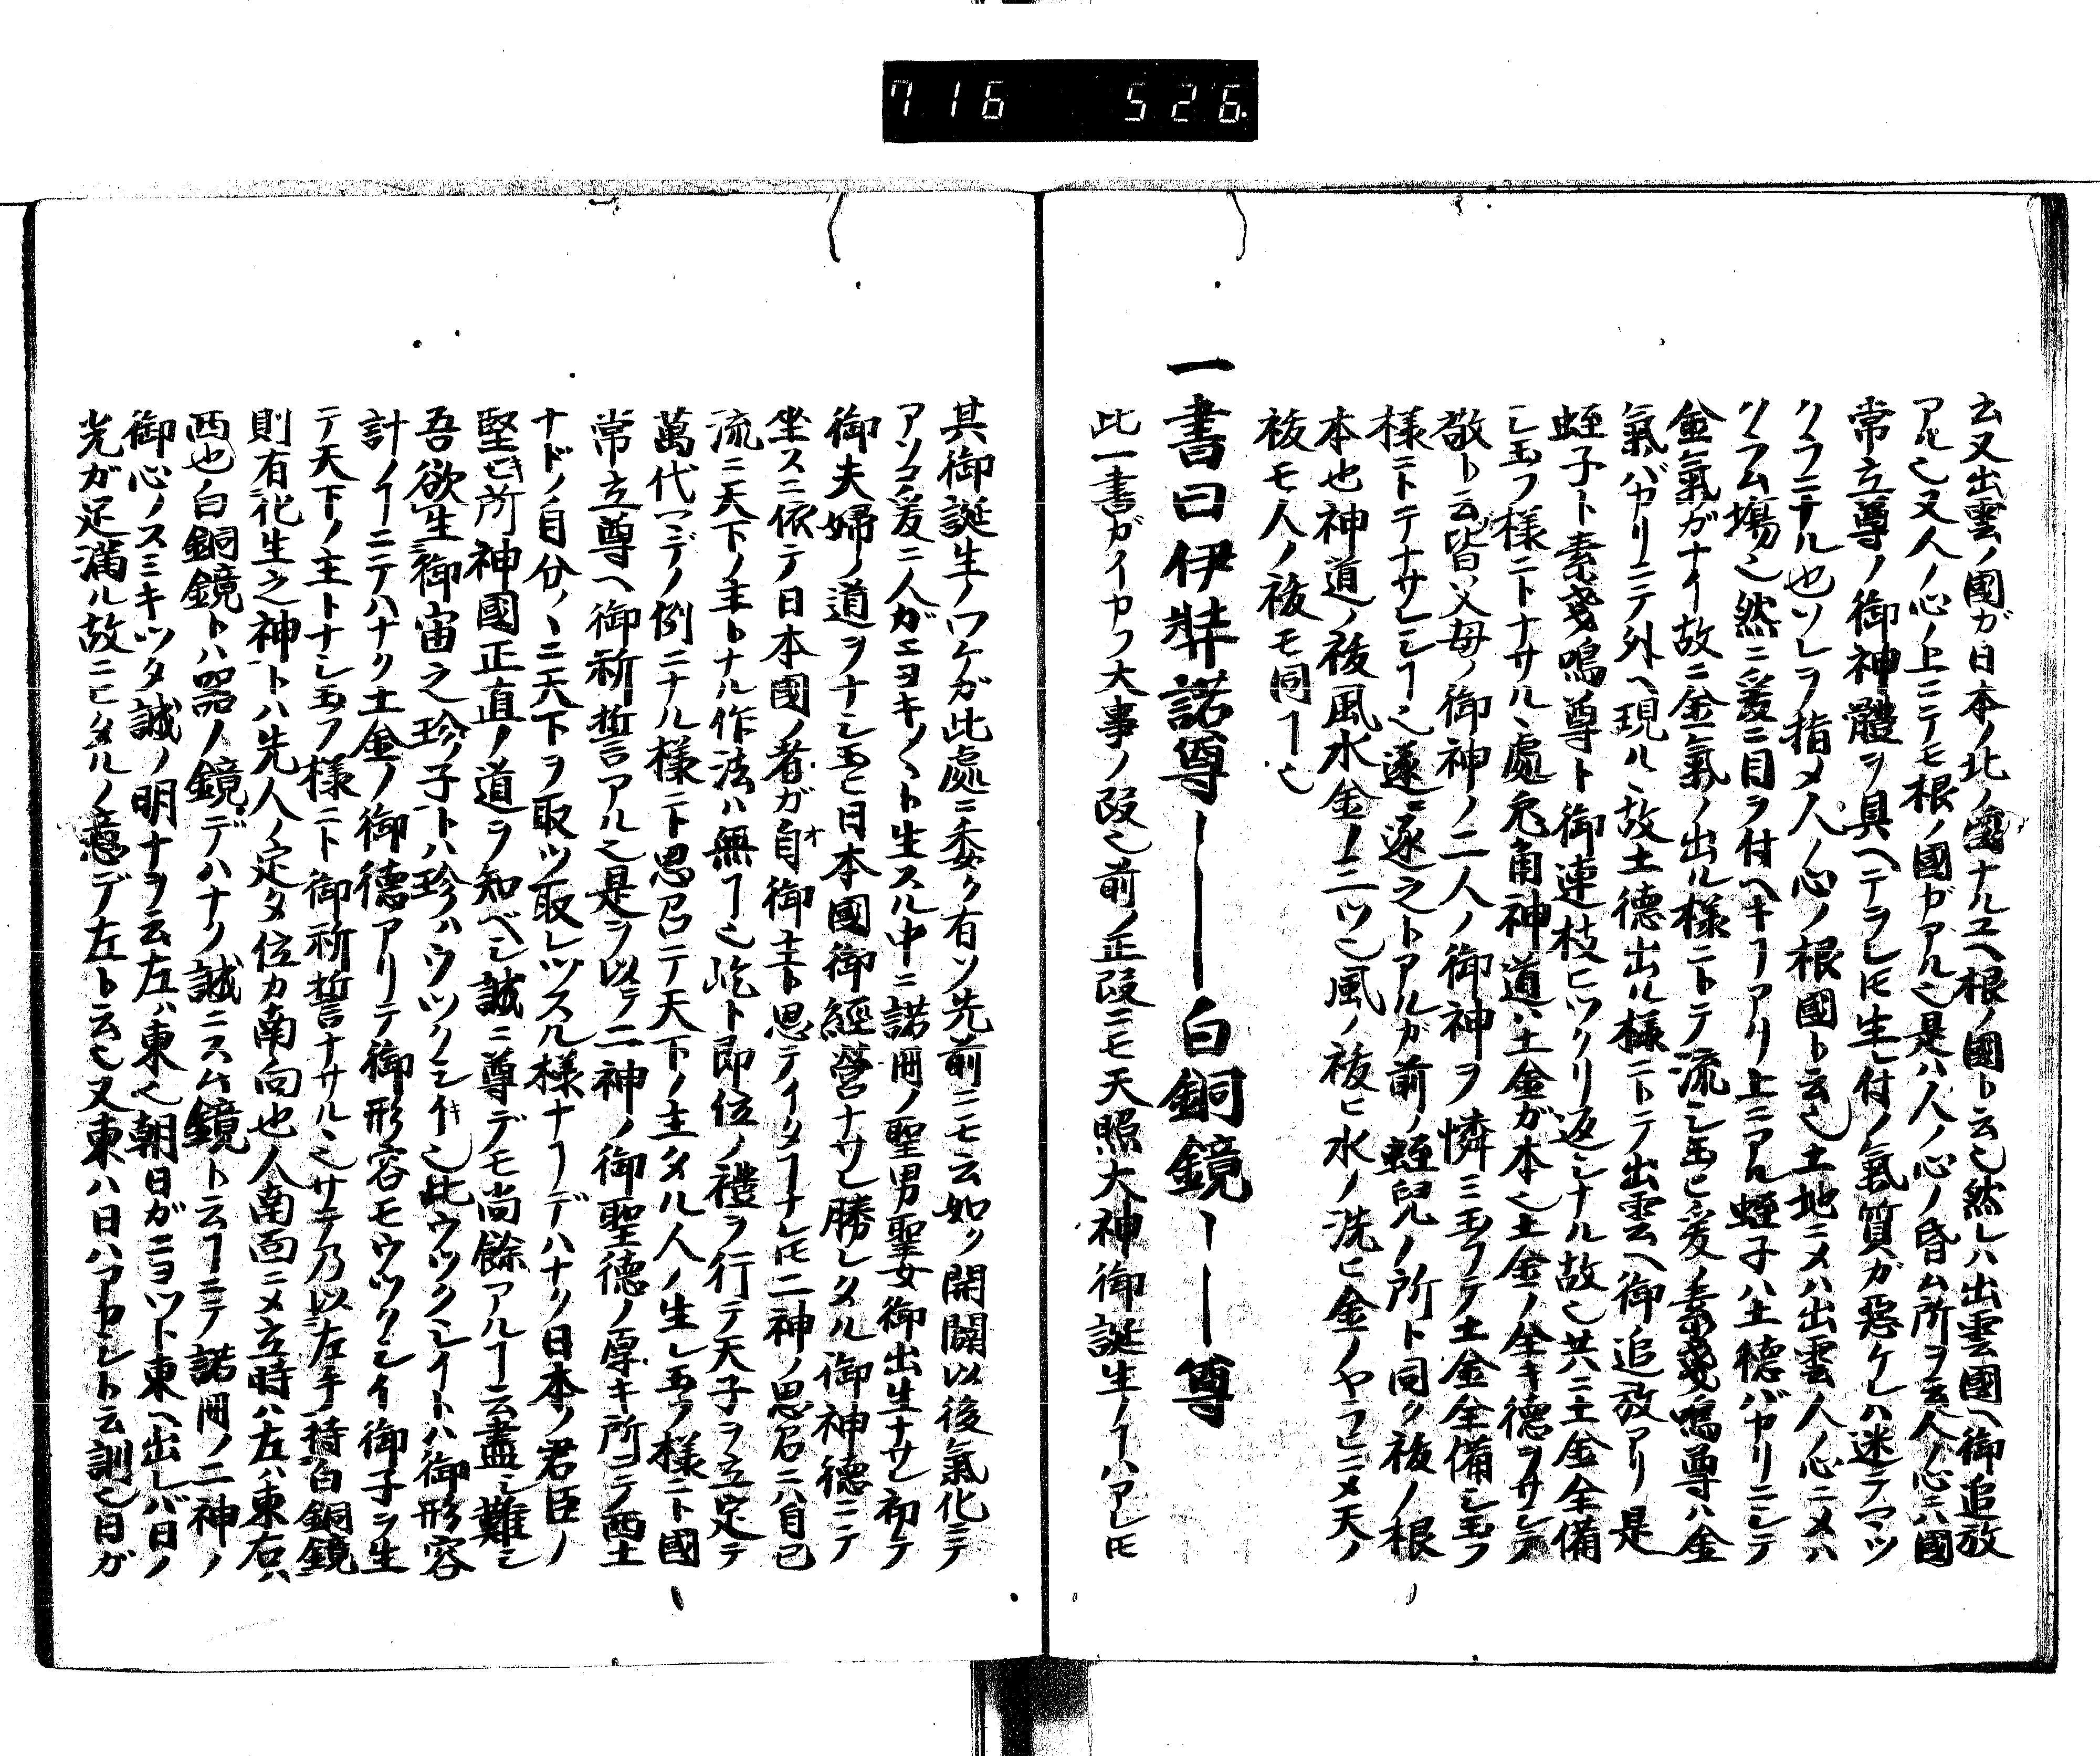 716 526.
云又出雲ノ國ガ日本ノ北ノ國ナルユヘ根ノ國ト云也然レハ出雲國ヘ御追放
アル也又人ノ心上ニテモ根ノ國ガアル也是ハ人ノ心ノ昏ム所ヲ云人ノ心ニハ國
常立尊ノ御神體ヲ具ヘテヲレ𪜈生レ付ノ氣質ガ惡ケレハ迷テマツ
クラニナル也ソレヲ指メ人ノ心ノ根國ト云也土地ニメハ出雲人ノ心ニメハ
クラム塲也然ニ爰ニ目ヲ付ヘキヿアリ上ニアル蛭子ハ土德バカリニシテ
金氣ガナイ故ニ金氣ノ出ル樣ニトテ流シ玉ヒ爰ノ素戔嗚尊ハ金
氣バカリニテ外ヘ現ルヽ故土德出ル樣ニトテ出雲ヘ御追放アリ是
蛭子ト素戔嗚尊ト御連枝ヒツクリ返シナル故也共ニ土金全備
シ玉フ樣ニトナサルヽ處兎角神道ハ土金ガ本也土金ノ全キ德ヲサシテ
敬ト云皆父母ノ御神ノ二人ノ御神ヲ憐ミ玉フテ土金全備シ玉フ
樣ニトテナサレシヿ也遂ニ逐之トアルカ前ノ蛭兒ノ所ト同ク祓ノ根
本也神道ノ祓風水金ノ二ツ也風ノ祓ヒ水ノ洗ヒ金ノヤラヒニメ天ノ
祓モ人ノ祓モ同ヿ也
一書曰伊弉諾尊――白銅鏡――尊
此一書ガイカフ大事ノ段也前ノ正段ニモ天照大神御誕生ノヿハアレ𪜈
其御誕生ノワケガ此處ニ委ク有ソ先前ニモ云如ク開闢以後氣化ニテ
アソコ爰ニ人ガエヨキ〱ト生スル中ニ諾冊ノ聖男聖女御出生ナサレ初テ
御夫婦ノ道ヲナシ玉ヒ日本國御經營ナサレ勝レタル御神德ニテ
坐スニ依テ日本國ノ者ガ自御主ト思テイタヿナレ𪜈二神ノ思召ニハ自己
流ニ天下ノ主トナル作法ハ無ヿ也屹ト即位ノ禮ヲ行テ天子ヲ立定テ
萬代マデノ例ニナル樣ニト思召ニテ天下ノ主タル人ノ生レ玉フ樣ニト國
常立尊ヘ御祈誓アル也是ヲ以テ二神ノ御聖德ノ厚キ所コニテ西土
ナドノ自分〱ニ天下ヲ取ツ取レツスル樣ナヿデハナク日本ノ君臣ノ
堅キ所神國正直ノ道ヲ知ベシ誠ニ尊デモ尚餘アルヿ云盡シ難シ
吾欲生御宙之珍ノ子トハ珍ハウツクシキ也此ウツクシイトハ御形容
計ノヿニテハナク土金ノ御德アリテ御形容モウツクシイ御子ヲ生
テ天下ノ主トナシ玉フ樣ニト御祈誓ナサル也サテ乃以左手持白銅鏡
則有化生之神トハ先人ノ定タ位カ南向也人南面ニメ立時ハ左ハ東右ハ
西也白銅鏡トハ器ノ鏡デハナク誠ニスム鏡ト云ヿニテ諾冊ノ二神ノ
御心ノスミキツタ誠ノ明ナヲ云左ハ東也朝日ガニヨツト東ヘ出レバ日ノ
光ガ足滿ル故ニヒタルノ意デ左ト云也又東ハ日ハアカシト云訓也日ガ